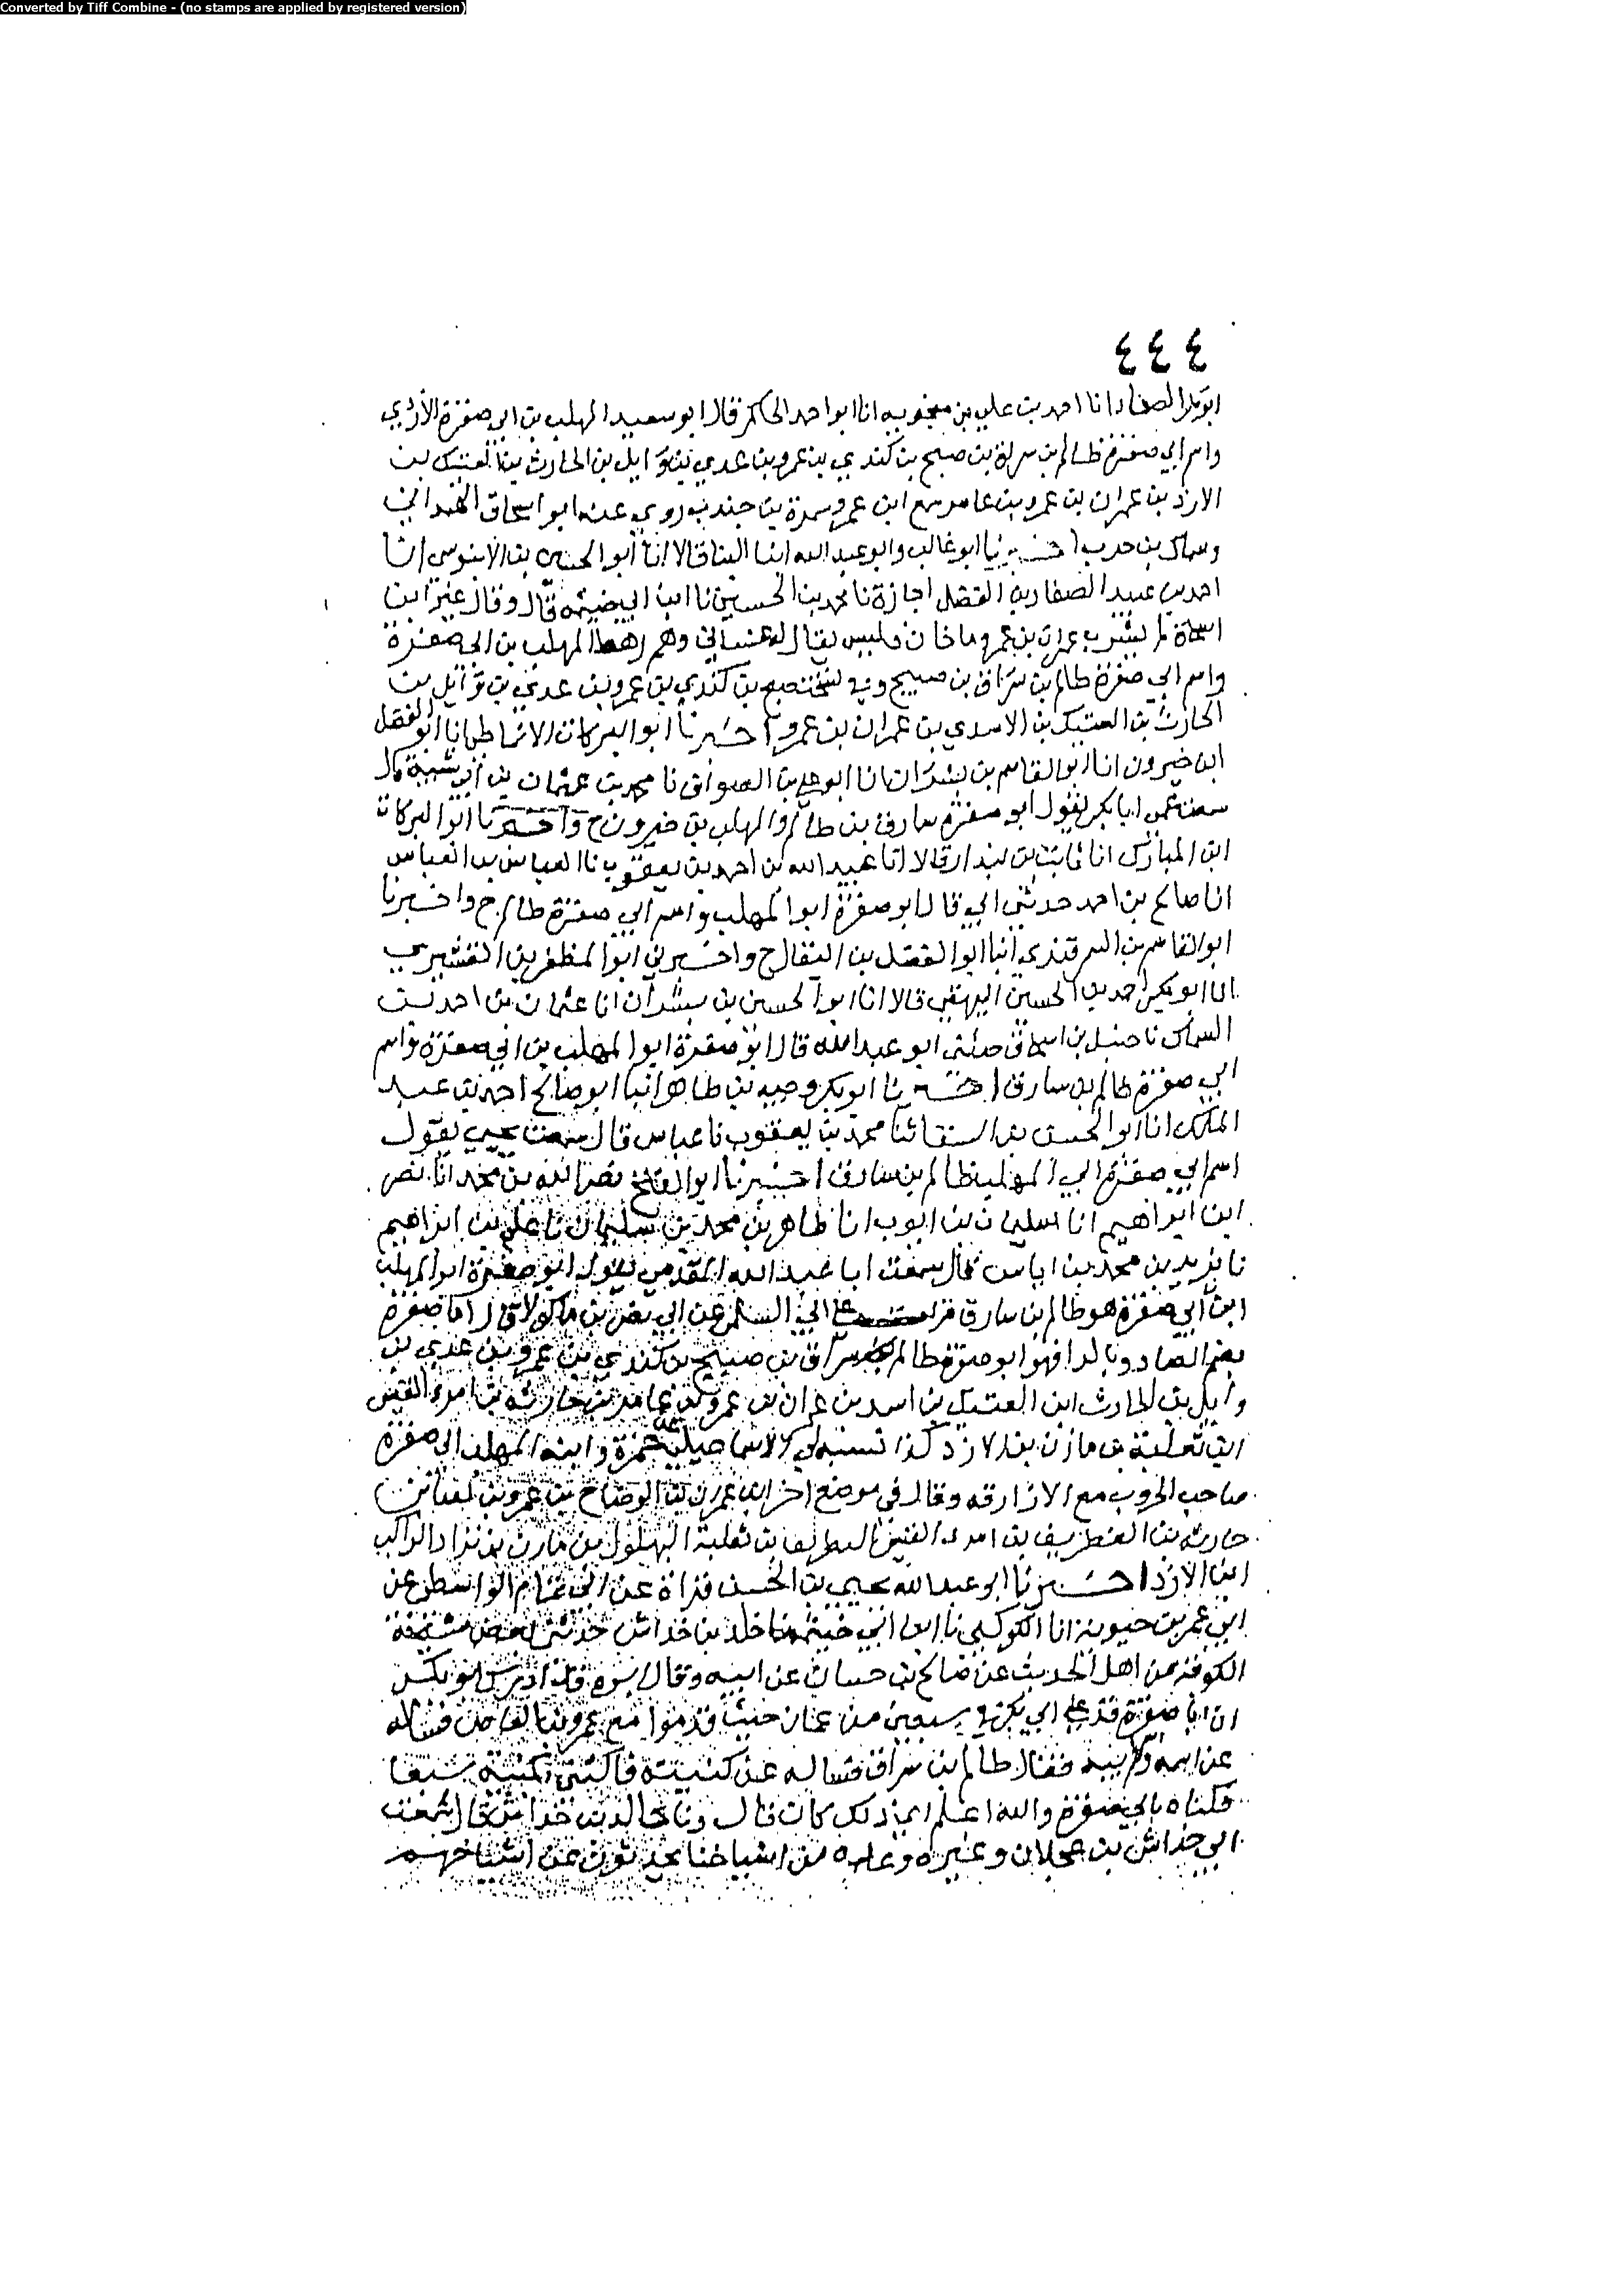 Converted by Tiff Combine - (no stamps are applied by registered version)
٤٤٤
ابو بكر الصفار انا احمد بن علي بن منجويه انا ابو احمد الحاكم قال ابو سعيد المهلب بن ابي صفرة الأزدي
واسم ابي صفرة ظالم بن سراق بن صبح بن كندي بن عمرو بن عدي بن وايل بن الحارث بن العتيك بن
الازد بن عمران بن عمرو بن عامر سمع ابن عمر وسمرة بن جندب روي عنه ابو اسحاق الهمداني
وسماك بن حرب اخبرنا ابو غالب وابو عبد الله ابنا البنا قالا انا ابو الحسين بن الابنوسي انا
احمد بن عبيد الصفار بن الفضل اجازة نا محمد بن الحسين نا ابن ابي خيثمة قال وقال غير ابن
اسماة لم يشرب عمران بن عمرو ماء غسان فليس يقال له غساني وهم رهط المهلب بن ابي صفرة
واسم ابي صفرة ظالم بن سراق بن صبيح وفي نسخة صبح بن كندي بن عمرو بن عدي بن وايل بن
الحارث بن العتيك بن الاسدي بن عمران بن عمرو اخبرنا ابو البركات الانماطي انا ابو الفضل
ابن خيرون انا ابو القاسم بن بشران انا ابو علي بن الصواف نا محمد بن عثمان بن ابي شيبة قال
سمعت عمي ابا بكر يقول ابو صفرة سارق بن ظالم والمهلب بن خيرون ح واخبرنا ابو البركات
ابن المبارك انا ثابت بن بندار قالا انا عبيد الله بن احمد بن يعقوب نا العباس بن العباس
انا صالح بن احمد حدثني ابي قال ابو صفرة ابو المهلب واسم ابي صفرة ظالم ح واخبرنا
ابو القاسم بن السمرقندي انبا ابو الفضل بن البقال ح واخبرني ابو المظفر بن القشيري
انا ابو بكر احمد بن الحسين البيهقي قالا انا ابو الحسين بن بشران انا عثمان بن احمد بن
السماك نا حنبل بن اسحاق حدثني ابو عبد الله قال ابو صفرة ابو المهلب بن ابي صفرة واسم
ابي صفرة ظالم بن سارق اخبرنا ابو بكر وجيه بن طاهر انبا ابو صالح احمد بن عبد
الملك انا ابو الحسن بن السقا ثنا محمد بن يعقوب نا عباس قال سمعت يحيي يقول
اسم ابي صفرة ابي المهلب ظالم بن سارق اخبرنا ابو الفتح نصر الله بن محمد انا نصر
ابن ابراهيم انا سليمان بن ايوب انا طاهر بن محمد بن سليمان نا علي بن ابراهيم
نا يزيد بن محمد بن اياس قال سمعت ابا عبد الله المقدمي يقول ابو صفرة ابو المهلب
ابن ابي صفرة هو ظالم بن سارق قرات علي ابي السلمي عن ابي نصر بن ماكولا قال اما صفرة
بضم الصاد وبالرا فهو ابو صفرة ظالم بن سراق بن صبيح بن كندي بن عمرو بن عدي بن
وايل بن الحارث ابن العتيك بن اسد بن عمران بن عمرو بن عامر بن حارثة بن امرء القيس
ابن ثعلبة بن مازن بن الازد كذا نسبه حمزة وابنه المهلب ابي صفرة
صاحب الحروب مع الازارقه وقال في موضع اخر ابن عمران بن الوضاح بن عمرو بن
حارثه بن الغطريف بن امرء القيس البطريق بن ثعلبة البهلول بن مازن بن الراكب
ابن الازد اخبرنا ابو عبد الله يحيي بن الحسن قراة عن ابي تمام الواسطي عن
ابي عمر بن حيوية انا الكوكبي نا ابن ابي خيثمة نا خلد بن خداش حدثني بعض مشيخة
الكوفة من اهل الحديث عن صالح بن حسان عن ابيه وقال
ان ابا صفرة قدم علي ابي بكر في سبعين من عمان حيث قدموا مع عمرو بن العاص فساله
عن اسمه واسم ابيه فقال ظالم بن سراق فساله عن كنيته فاكتني بكنية
فكناه بابي صفرة والله اعلم اي ذلك كان قال ونا خالد بن خداش قال سمعت
ابي خداش بن عجلان وغيره وعامة من اشياخنا يحدثون عن اشياخهم